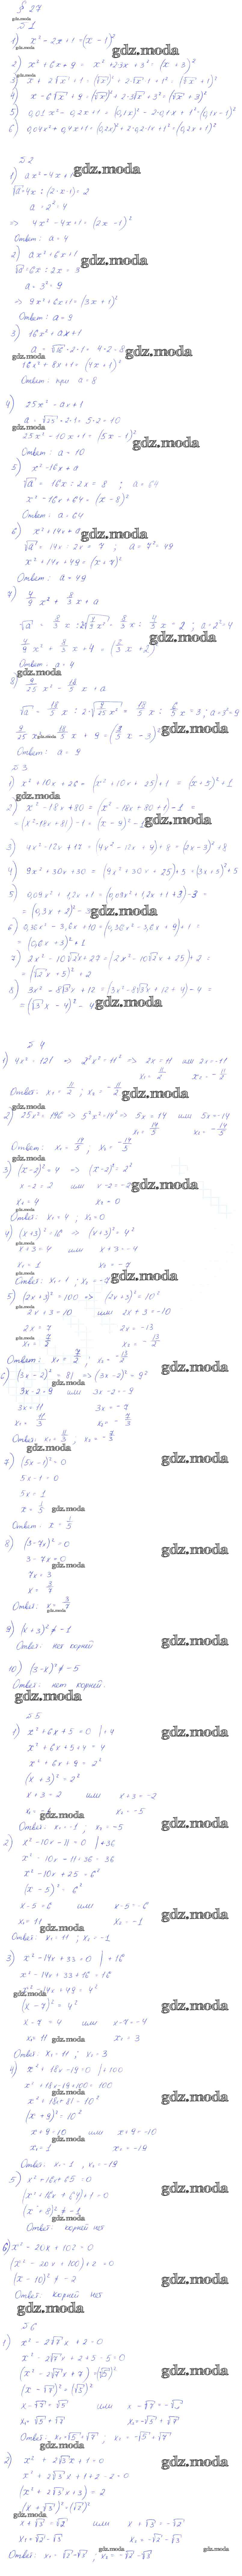 § 27
№ 1
1) x² - 2x + 1 = (x - 1)²
2) x² + 6x + 9 = x² + 2·3x + 3² = (x + 3)²
3) x + 2√x + 1 = (√x)² + 2√x·1 + 1² = (√x + 1)²
4) x + 6√x + 9 = (√x)² + 2·3√x + 3² = (√x + 3)²
5) 0,01x² - 0,2x + 1 = (0,1x)² - 2·0,1x + 1² = (0,1x - 1)²
6) 0,04x² + 0,4x + 1 = (0,2x)² + 2·0,2·1x + 1² = (0,2x + 1)²
№ 2
1) ax² - 4x + 1
√a = 4x : (2·x·1) = 2
a = 2² = 4
=> 4x² - 4x + 1 = (2x - 1)²
Ответ: a = 4
2) ax² + 6x + 1
√a = 6x : 2x = 3
a = 3² = 9
=> 9x² + 6x + 1 = (3x + 1)²
Ответ: a = 9
3) 16x² + ax + 1
a = √16·2·1 = 4·2 = 8
16x² + 8x + 1 = (4x + 1)²
Ответ: при a = 8
4) 25x² - ax + 1
a = √25·2·1 = 5·2 = 10
25x² - 10x + 1 = (5x - 1)²
Ответ: a = 10
5) x² - 16x + a
√a = 16x : 2x = 8 ; a = 64
x² - 16x + 64 = (x - 8)²
Ответ: a = 64
6) x² + 14x + a
√a = 14x : 2x = 7 ; a = 7² = 49
x² + 14x + 49 = (x + 7)²
Ответ: a = 49
7) 4/9 x² + 8/3 x + a
Ответ: a = 4
8) 9/25 x² - 18/5 x + a
Ответ: a = 9
№ 3
1) x² + 10x + 26 = (x² + 10x + 25) + 1 = (x + 5)² + 1
2) x² - 18x + 80 = (x² - 18x + 80 + 1) - 1 =
= (x² - 18x + 81) - 1 = (x - 9)² - 1
3) 4x² - 12x + 17 = (4x² - 12x + 9) + 8 = (2x - 3)² + 8
4) 9x² + 30x + 30 = (9x² + 30x + 25) + 5 = (3x + 5)² + 5
= (0,3x + 2)² - 3
= (0,6x + 3)² + 1
7) 2x² - 10√2x + 27 = (2x² - 10√2x + 25) + 2 =
8) 3x² - 8√3x + 12 = (3x² - 8√3x + 12 + 4) - 4 =
= (√3x - 4)² - 4
№ 4
1) 4x² = 121 => 2²x² = 11² => 2x = 11 или 2x = -11
x₁ = 11/2 x₂ = -11/2
Ответ: x₁ = 11/2 ; x₂ = -11/2
2) 25x² = 196 => 5²x² = 14² => 5x = 14 или 5x = -14
x₁ = 14/5 x₂ = -14/5
Ответ: x₁ = 14/5 ; x₂ = -14/5
3) (x - 2)² = 4 => (x - 2)² = 2²
x - 2 = 2 или x - 2 = -2
x₁ = 4 x₂ = 0
Ответ: x₁ = 4 ; x₂ = 0
4) (x + 3)² = 16 => (x + 3)² = 4²
x + 3 = 4 или x + 3 = -4
x₁ = 1 x₂ = -7
Ответ: x₁ = 1 ; x₂ = -7
5) (2x + 3)² = 100 => (2x + 3)² = 10²
2x + 3 = 10 или 2x + 3 = -10
2x = 7 2x = -13
x₁ = 7/2 x₂ = -13/2
Ответ: x₁ = 7/2 ; x₂ = -13/2
6) (3x - 2)² = 81 => (3x - 2)² = 9²
3x - 2 = 9 или 3x - 2 = -9
3x = 11 3x = -7
x₁ = 11/3 x₂ = -7/3
Ответ: x₁ = 11/3 ; x₂ = -7/3
7) (5x - 1)² = 0
5x - 1 = 0
5x = 1
x = 1/5
Ответ: x = 1/5
8) (3 - 7x)² = 0
3 - 7x = 0
7x = 3
x = 3/7
Ответ: x = 3/7
9) (x + 3)² ≠ -1
Ответ: нет корней
10) (3 - x)² ≠ -5
Ответ: нет корней.
№ 5
1) x² + 6x + 5 = 0 | + 4
x² + 6x + 5 + 4 = 4
x² + 6x + 9 = 2²
(x + 3)² = 2²
x + 3 = 2 или x + 3 = -2
x₂ = -5
Ответ: x₁ = -1 ; x₂ = -5
2) x² - 10x - 11 = 0 | + 36
x² - 10x - 11 + 36 = 36
x² - 10x + 25 = 6²
(x - 5)² = 6²
x - 5 = 6 или x - 5 = -6
x₁ = 11 x₂ = -1
Ответ: x₁ = 11 ; x₂ = -1
3) x² - 14x + 33 = 0 | + 16
x² - 14x + 33 + 16 = 16
x² - 14x + 49 = 4²
(x - 7)² = 4²
x - 7 = 4 или x - 7 = -4
x₁ = 11 x₂ = 3
Ответ: x₁ = 11 ; x₂ = 3
4) x² + 18x - 19 = 0 | + 100
x² + 18x - 19 + 100 = 100
x² + 18x + 81 = 10²
(x + 9)² = 10²
x + 9 = 10 или x + 9 = -10
x₁ = 1 x₂ = -19
Ответ: x₁ = 1 , x₂ = -19
5) x² + 16x + 65 = 0
(x² + 16x + 64) + 1 = 0
(x + 8)² ≠ -1
Ответ: корней нет
6) x² - 20x + 102 = 0
(x² - 20x + 100) + 2 = 0
(x - 10)² ≠ -2
Ответ: корней нет
№ 6
1) x² - 2√7x + 2 = 0
x² - 2√7x + 2 + 5 - 5 = 0
(x² - 2√7x + 7) = (√5)²
(x - √7)² = (√5)²
x - √7 = √5 или x - √7 = -√5
x₁ = √5 + √7 x₂ = -√5 + √7
Ответ: x₁ = √5 + √7 ; x₂ = -√5 + √7
2) x² + 2√3x + 1 = 0
x² + 2√3x + 1 + 2 - 2 = 0
(x² + 2√3x + 3) = 2
(x + √3)² = (√2)²
x + √3 = √2 или x + √3 = -√2
x₁ = √2 - √3 x₂ = -√2 - √3
Ответ: x₁ = √2 - √3 ; x₂ = -√2 - √3
gdz.moda